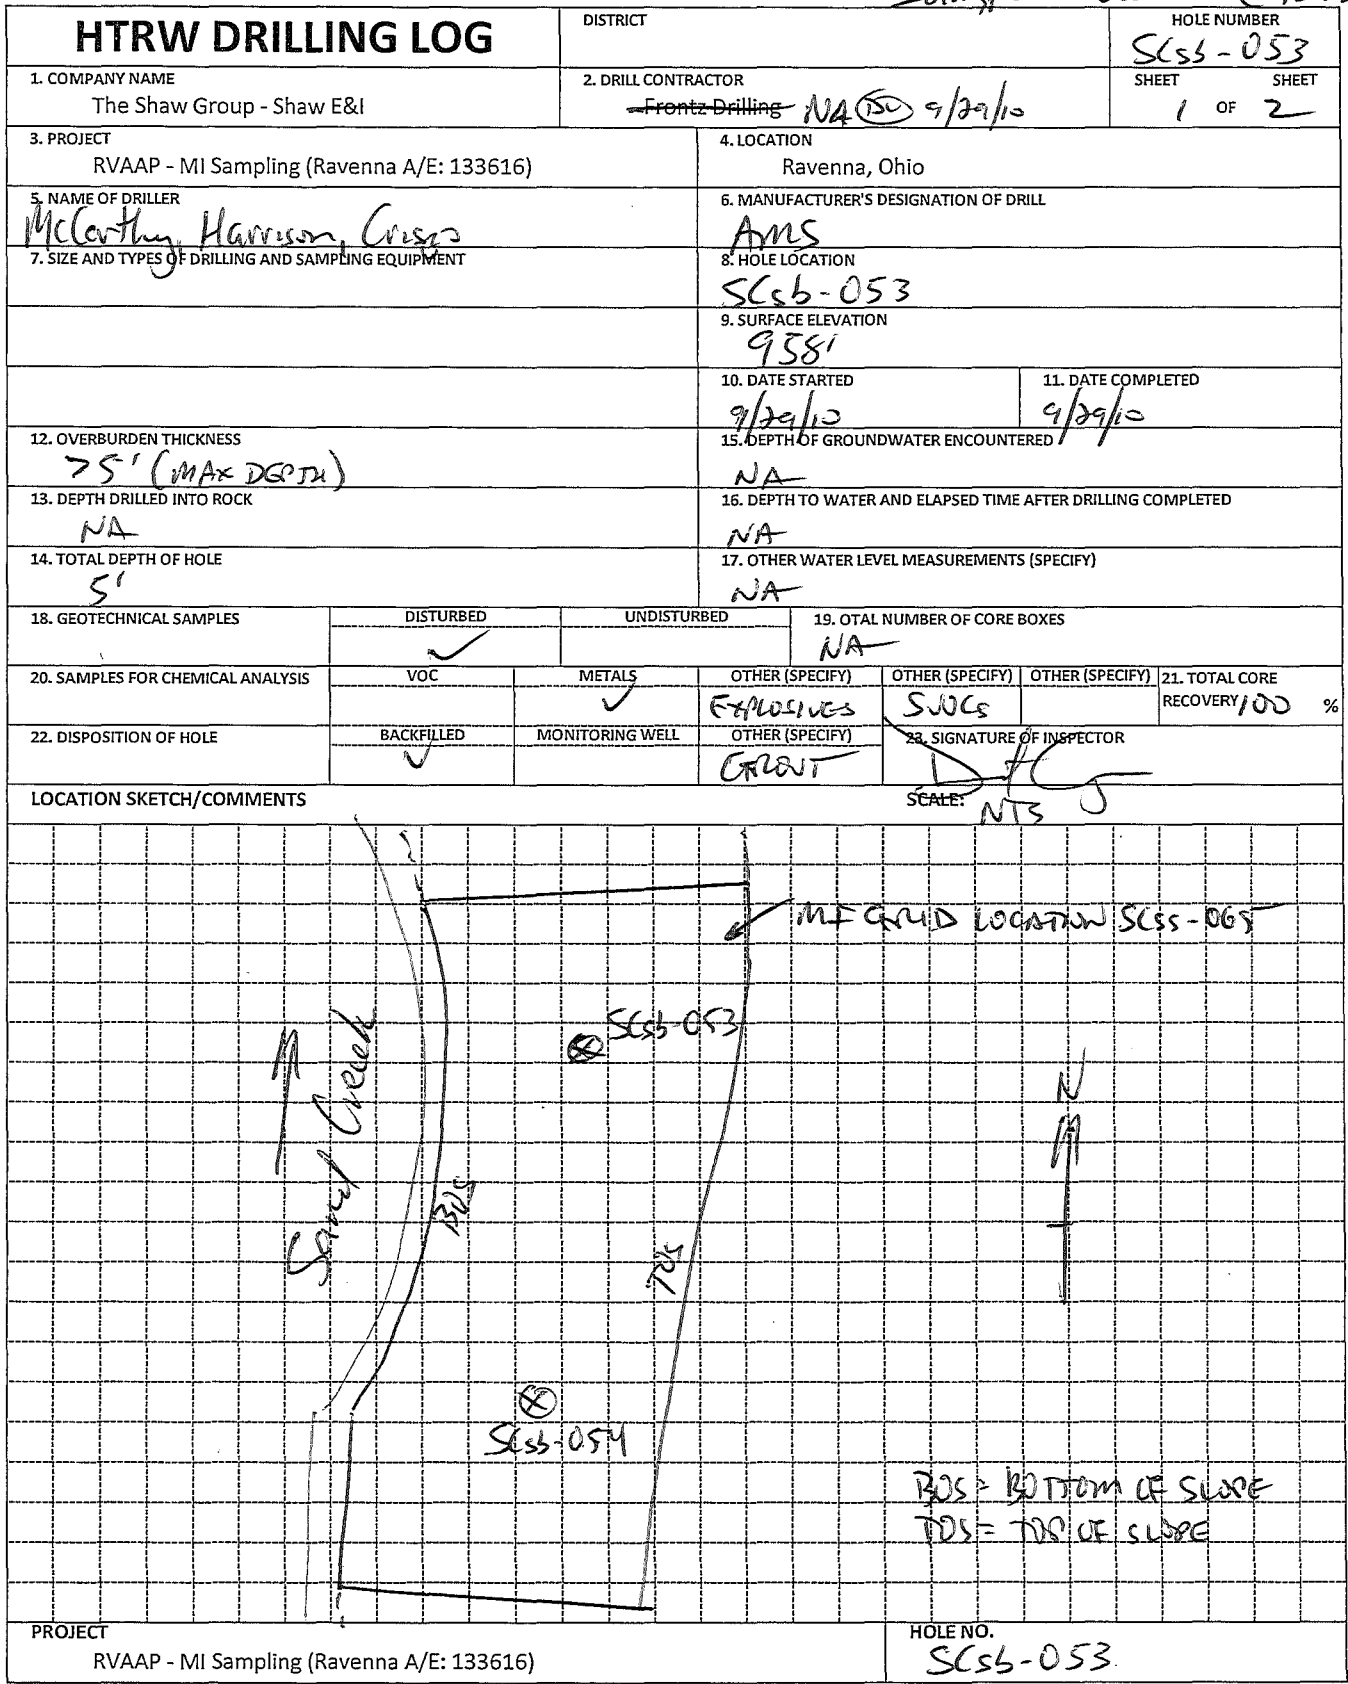 HTRW DRILLING LOG
DISTRICT
HOLE NUMBER
SCsb-053
1. COMPANY NAME
The Shaw Group - Shaw E&I
2. DRILL CONTRACTOR
Frontz Drilling NA 9/29/10
SHEET SHEET
1 OF 2
3. PROJECT
RVAAP - MI Sampling (Ravenna A/E: 133616)
4. LOCATION
Ravenna, Ohio
5. NAME OF DRILLER
McCarthy, Harrison, Crispo
6. MANUFACTURER'S DESIGNATION OF DRILL
AMS
7. SIZE AND TYPES OF DRILLING AND SAMPLING EQUIPMENT
8. HOLE LOCATION
SCsb-053
9. SURFACE ELEVATION
958'
10. DATE STARTED
9/29/10
11. DATE COMPLETED
9/29/10
12. OVERBURDEN THICKNESS
>5' (MAX DEPTH)
15. DEPTH OF GROUNDWATER ENCOUNTERED
NA
13. DEPTH DRILLED INTO ROCK
NA
16. DEPTH TO WATER AND ELAPSED TIME AFTER DRILLING COMPLETED
NA
14. TOTAL DEPTH OF HOLE
5'
17. OTHER WATER LEVEL MEASUREMENTS (SPECIFY)
NA
18. GEOTECHNICAL SAMPLES
DISTURBED
✓
UNDISTURBED
19. OTAL NUMBER OF CORE BOXES
NA
20. SAMPLES FOR CHEMICAL ANALYSIS
VOC
METALS
✓
OTHER (SPECIFY)
EXPLOSIVES
OTHER (SPECIFY)
SVOCs
OTHER (SPECIFY)
21. TOTAL CORE
RECOVERY 100 %
22. DISPOSITION OF HOLE
BACKFILLED
✓
MONITORING WELL
OTHER (SPECIFY)
GROUT
23. SIGNATURE OF INSPECTOR
LOCATION SKETCH/COMMENTS
SCALE: NTS
MI GRID LOCATION SCss-065
SCsb-053
Sand Creek
N
BOS
TOS
SCsb-054
BOS = BOTTOM OF SLOPE
TOS = TOP OF SLOPE
PROJECT
RVAAP - MI Sampling (Ravenna A/E: 133616)
HOLE NO.
SCsb-053